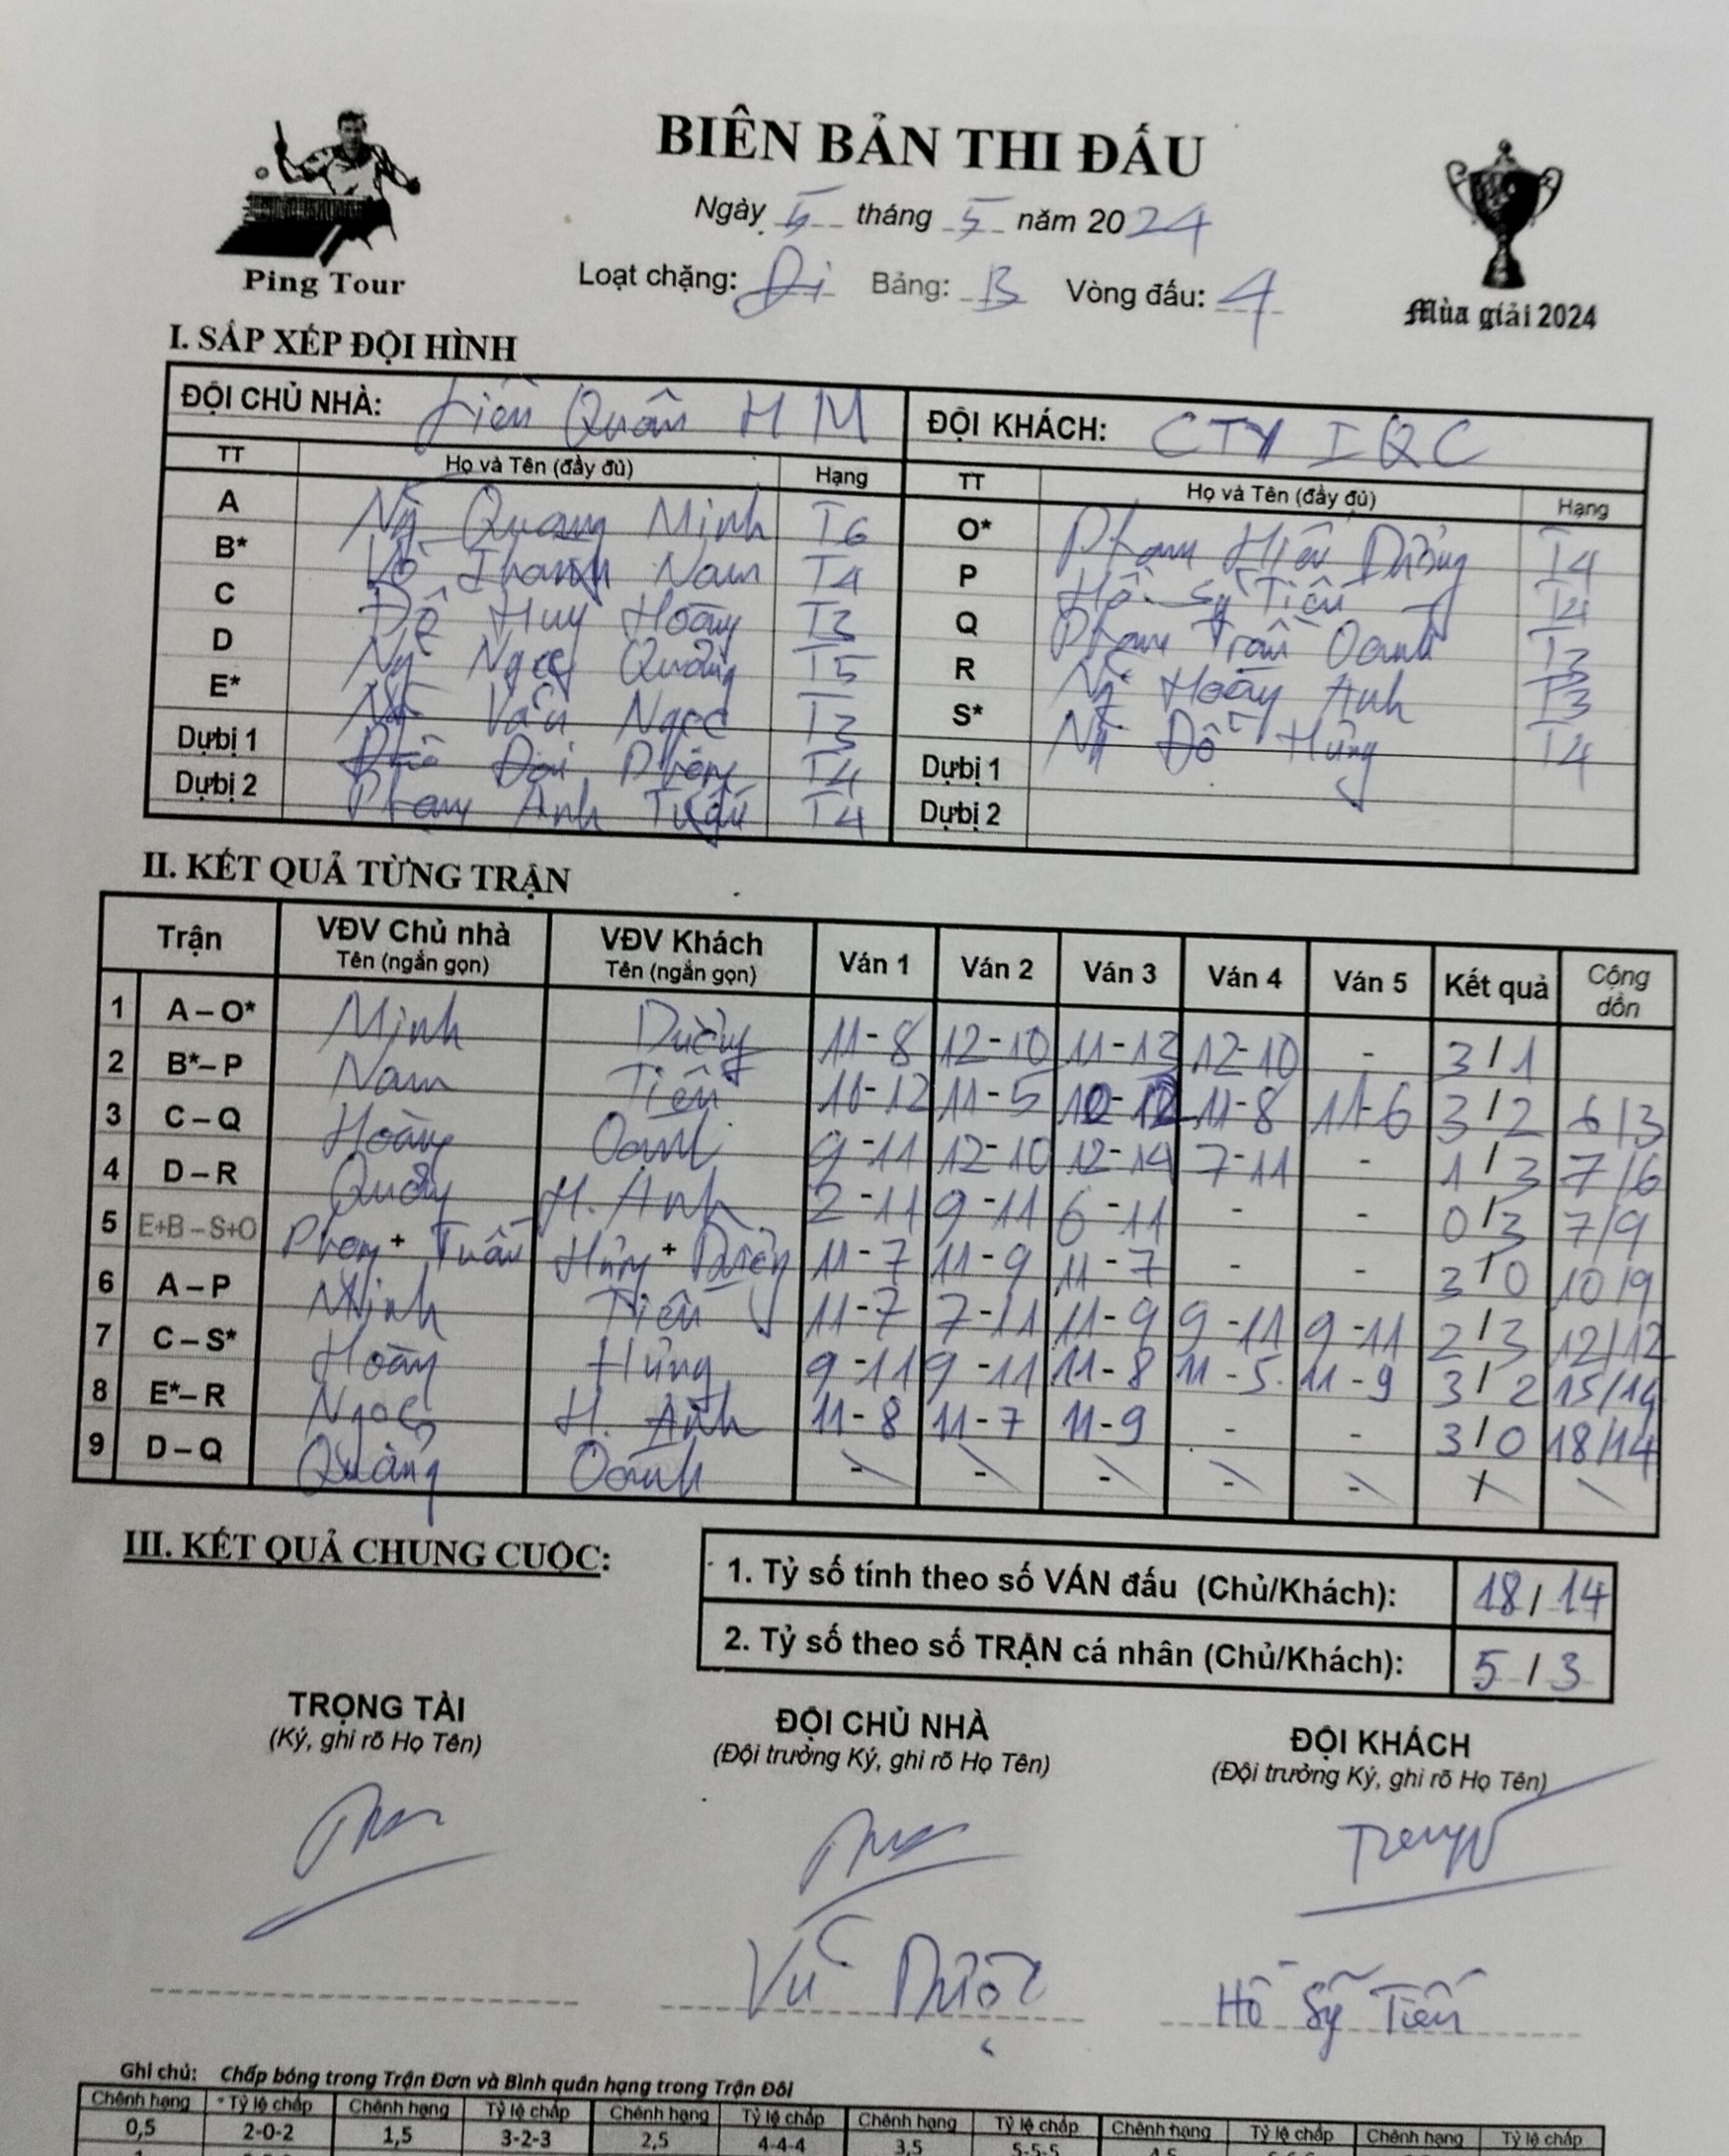 BIÊN BẢN THI ĐẤU
Ngày 5 tháng 5 năm 2024
Ping Tour
Loạt chặng: Đi Bảng: B Vòng đấu: 4
Mùa giải 2024
I. SẮP XẾP ĐỘI HÌNH
ĐỘI CHỦ NHÀ: Liên Quân HM ĐỘI KHÁCH: CTY IQC
TT Họ và Tên (đầy đủ) Hạng TT Họ và Tên (đầy đủ) Hạng
A Ng Quang Minh T6 O* Phạm Hiếu Dũng T4
B* Võ Thanh Nam T4 P Hồ Sỹ Tiến T4
C Đỗ Huy Hoàng T3 Q Phạm Trần Oanh T3
D Ng Ngọc Quảng T5 R Ng Hoàng Anh T3
E* Văn Ngọc T3 S* Ng Đỗ Hùng T4
Dự bị 1 Đại Phong T4 Dự bị 1
Dự bị 2 Phạm Anh Tuấn T4 Dự bị 2
II. KẾT QUẢ TỪNG TRẬN
Trận VĐV Chủ nhà Tên (ngắn gọn) VĐV Khách Tên (ngắn gọn) Ván 1 Ván 2 Ván 3 Ván 4 Ván 5 Kết quả Cộng dồn
1 A – O* Minh 11-8 12-10 11-13 12-10 - 3/1
2 B* – P Nam Tiến 10-12 11-5 10-12 11-8 11-6 3/2 6/3
3 C – Q Hoàng Oanh 9-11 12-10 12-14 7-11 - 1/3 7/6
4 D – R H. Anh 2-11 9-11 6-11 - - 0/3 7/9
5 E+B – S+O Phong + Tuấn Hùng + 11-7 11-9 11-7 - - 3/0 10/9
6 A – P Minh Tiến 11-7 7-11 11-9 9-11 9-11 2/3 12/12
7 C – S* Hoàng Hùng 9-11 9-11 11-8 11-5 11-9 3/2 15/14
8 E* – R Ngọc H. Anh 11-8 11-7 11-9 - - 3/0 18/14
9 D – Q Quảng Oanh - - - - - /
III. KẾT QUẢ CHUNG CUỘC:
1. Tỷ số tính theo số VÁN đấu (Chủ/Khách): 18/14
2. Tỷ số theo số TRẬN cá nhân (Chủ/Khách): 5/3
TRỌNG TÀI ĐỘI CHỦ NHÀ ĐỘI KHÁCH
(Ký, ghi rõ Họ Tên) (Đội trưởng Ký, ghi rõ Họ Tên) (Đội trưởng Ký, ghi rõ Họ Tên)
Vũ Hồ Sỹ Tiến
Ghi chú: Chấp bóng trong Trận Đơn và Bình quân hạng trong Trận Đôi
Chênh hạng Tỷ lệ chấp Chênh hạng Tỷ lệ chấp Chênh hạng Tỷ lệ chấp Chênh hạng Tỷ lệ chấp Chênh hạng Tỷ lệ chấp Chênh hạng Tỷ lệ chấp
0,5 2-0-2 1,5 3-2-3 2,5 4-4-4 3,5 5-5-5